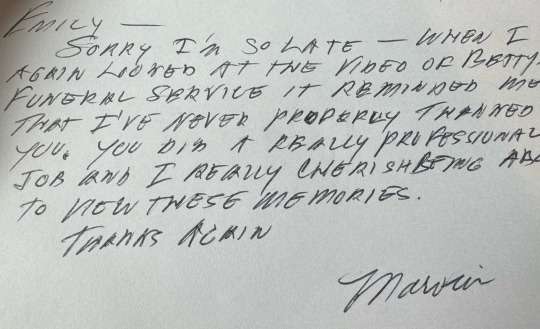 EMILY —
SORRY I'M SO LATE — WHEN I
AGAIN LOOKED AT THE VIDEO OF BETTY
FUNERAL SERVICE IT REMINDED ME
THAT I'VE NEVER PROPERLY THANKED
YOU. YOU DID A REALLY PROFESSIONAL
JOB AND I REALLY CHERISH BEING
TO VIEW THESE MEMORIES.
THANKS AGAIN
Marvin